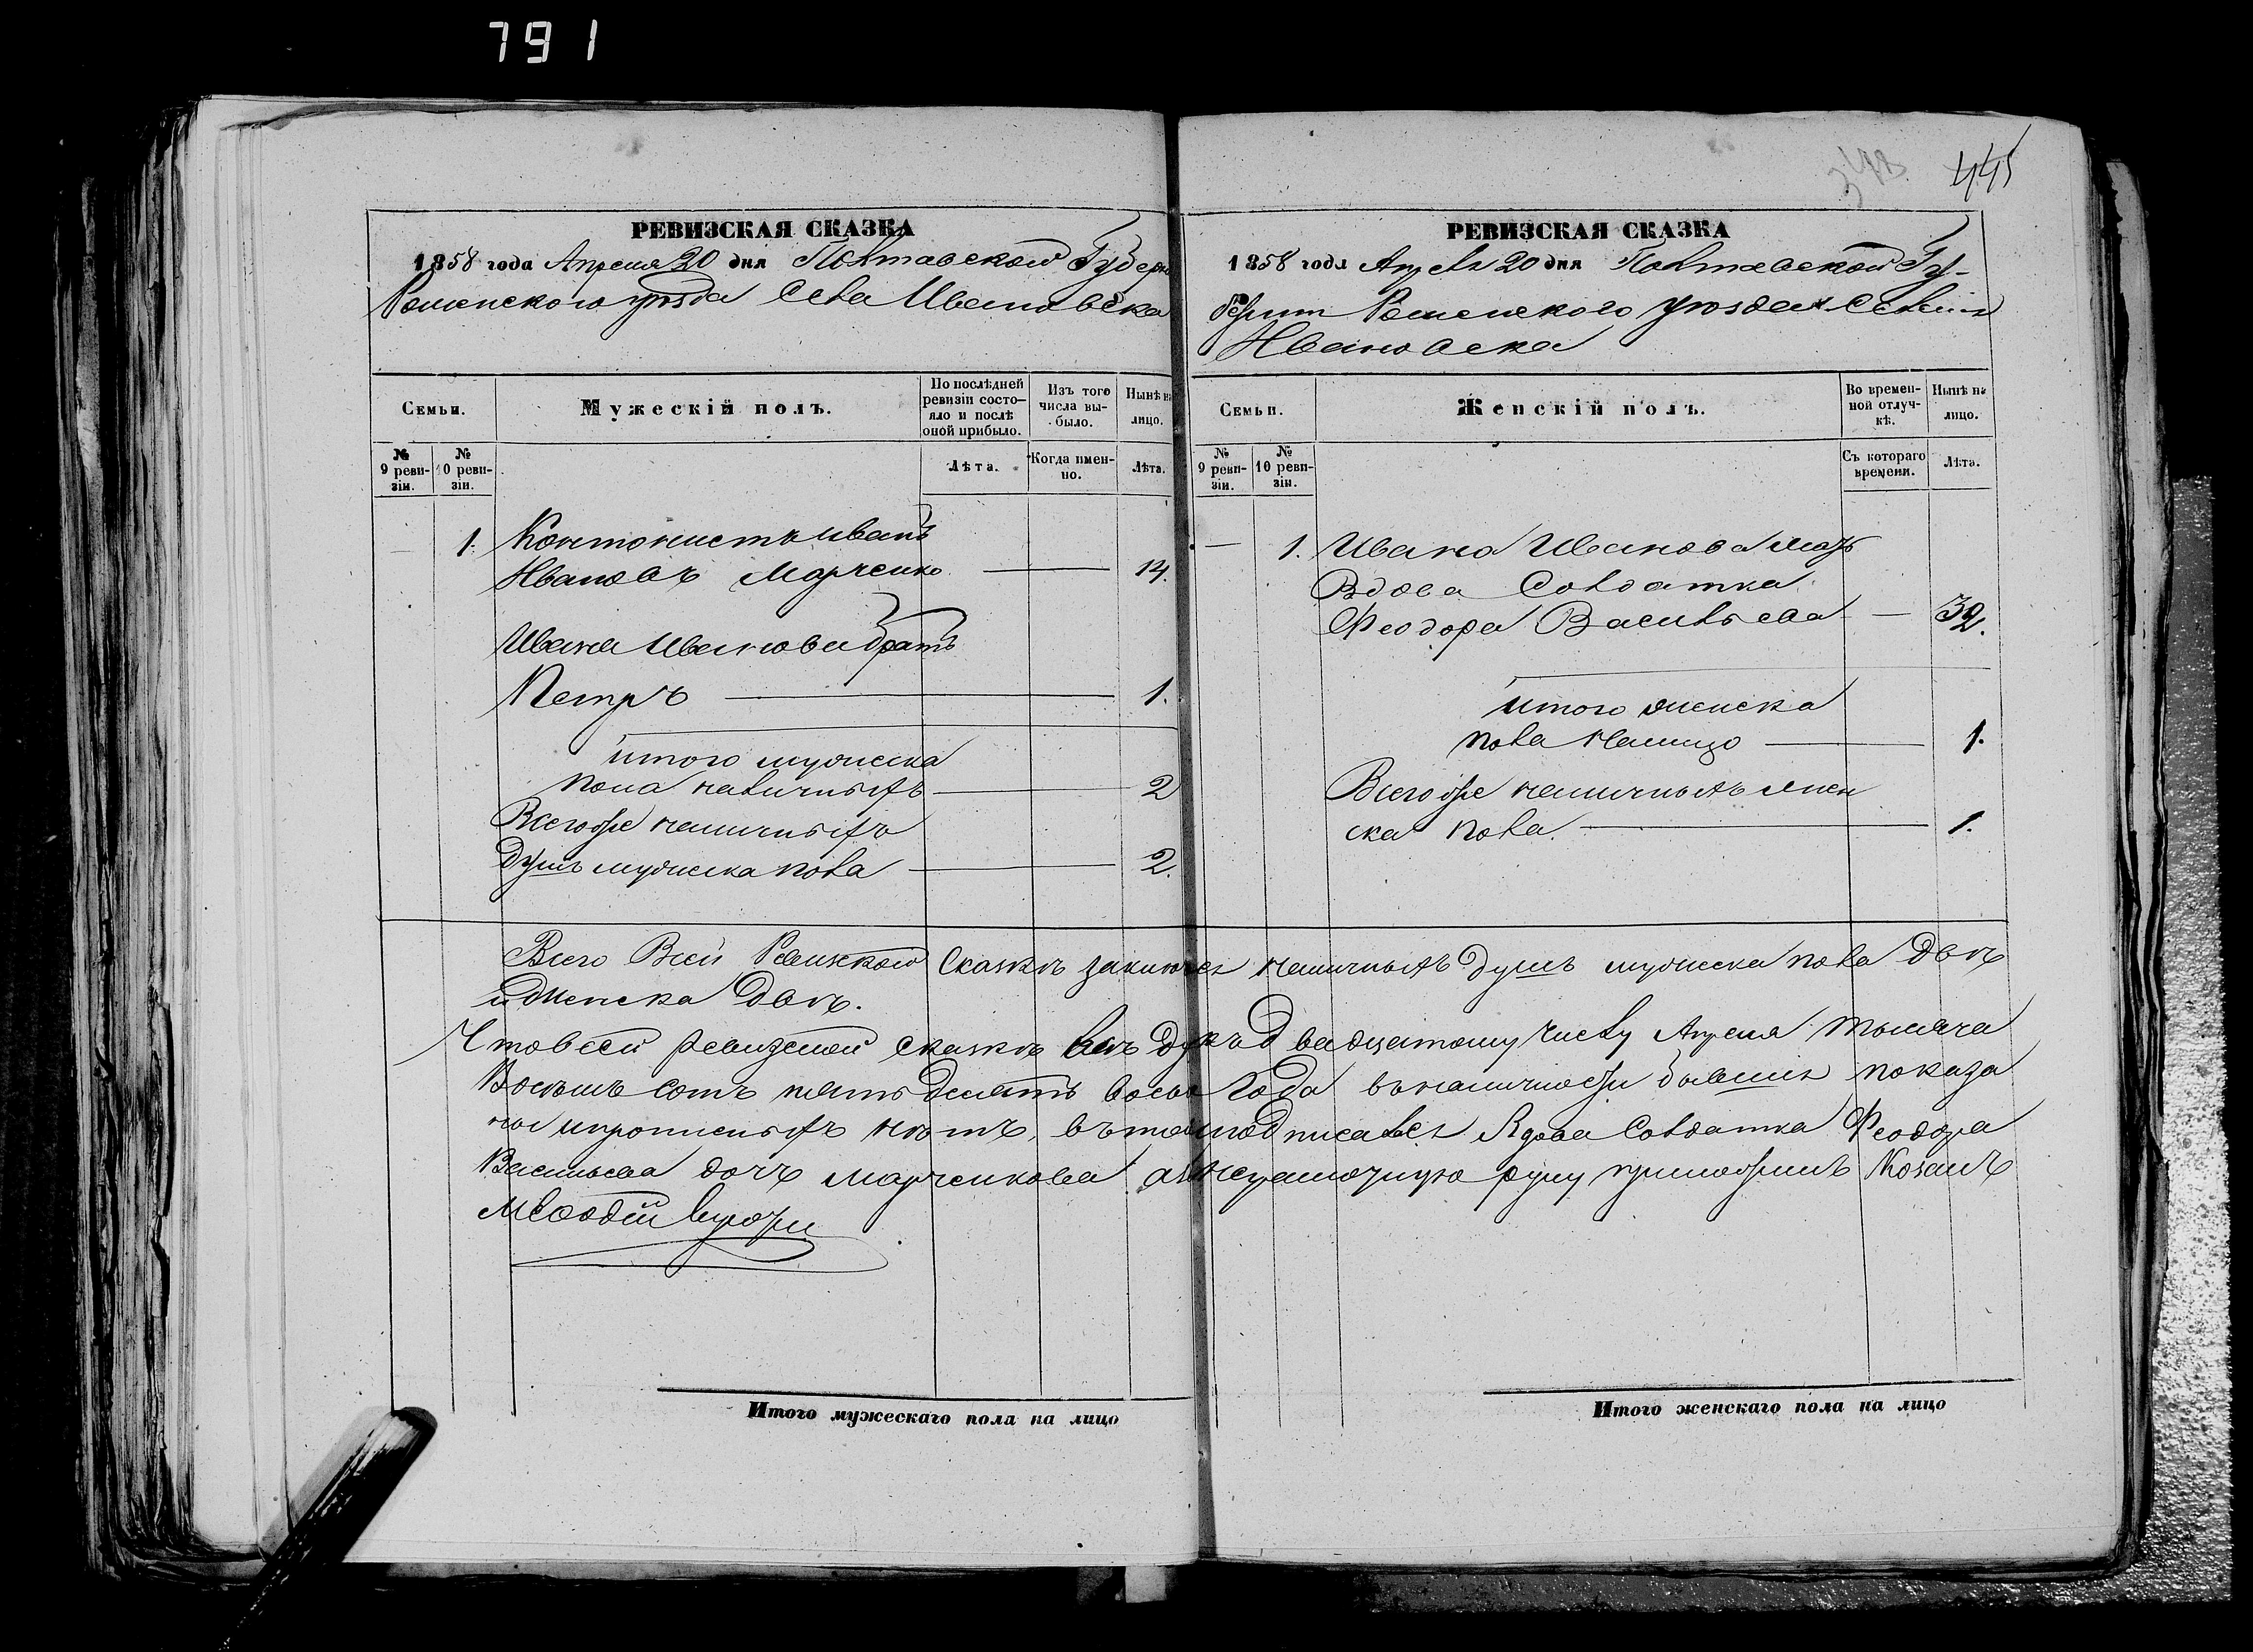 791
445
РЕВИЗСКАЯ СКАЗКА
1858 года Апреля 20 дня Полтавской Губерн
Роменского уѣзда Села Ивановска
Семьи.
Мужескій полъ.
По послѣдней ревизіи состояло и послѣ оной прибыло.
Изъ того числа выбыло.
Нынѣ на лицо.
№ 9 ревизіи.
№ 10 ревизіи.
Лѣта.
Когда именно.
Лѣта.
1. Контонистъ иванъ
Ивановъ Марченко 14.
Ивана Иванова братъ
Петръ 1.
итого мужеска
пола наличныхъ 2
Всегоже наличныхъ
душъ мужеска пола 2.
РЕВИЗСКАЯ СКАЗКА
1858 года Апреля 20 дня Полтавской Гу-
берніи Роменского уѣзда Селенія
Ивановска
Семьи.
Женскій полъ.
Во временной отлучкѣ.
Нынѣ на лицо.
№ 9 ревизіи.
№ 10 ревизіи.
Съ котораго времени.
Лѣта.
1. Ивана Иванова мать
Вдова Солдатка
Феодора Васильева 32.
итого женска
пола налицо 1.
Всегоже наличныхъ жен
ска пола 1.
Всего Всей Ревизской Сказкѣ наличныхъ душъ мужеска пола двѣ
иженска двѣ.
Чтовсей ревизской сказкѣ двадцатому числу Апреля тысяча
Восемь сотъ пятьдесятъ восьм года въналичности бывшія показа
ны ипрописныхъ нѣтъ, вътомъ подписалася Вдова Солдатка Феодора
Васильева дочъ Марченкова руку приложилъ Козакъ
Итого мужескаго пола на лицо
Итого женскаго пола на лицо